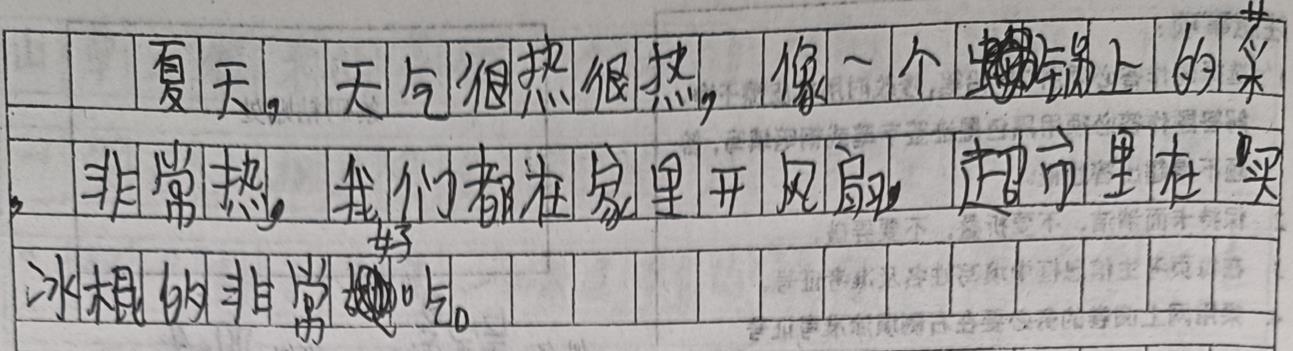 夏天,天气很热很热,像一个锅上的菜
,非常热,我们都在家里开风扇,超市里在买
冰棍的非常好吃。